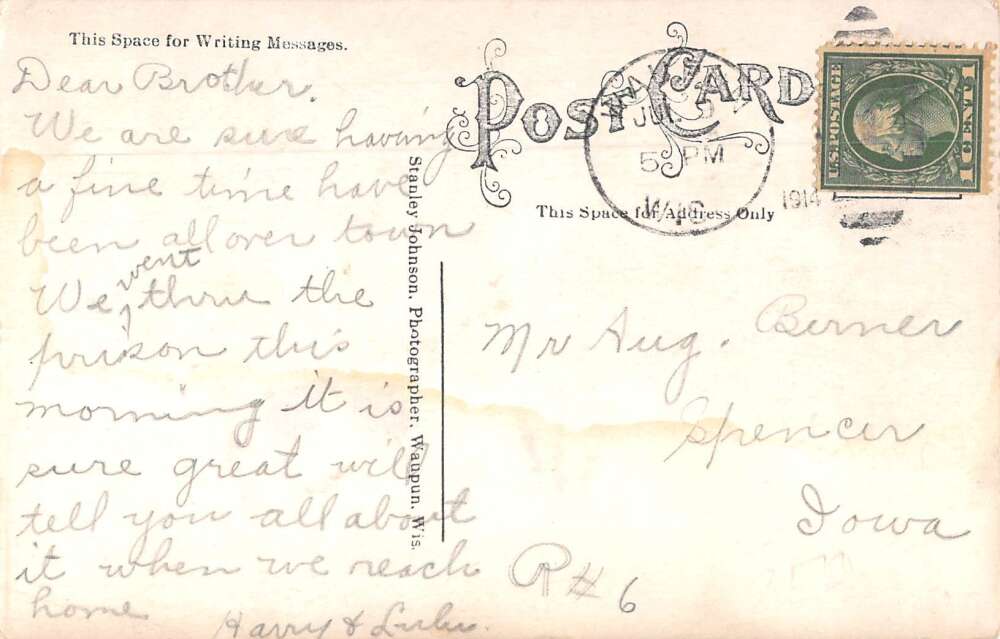 This Space for Writing Messages.
Dear Brother.
We are sure having
a fine time have
been all over town
We went thru the
prison this
morning it is
sure great will
tell you all about
it when we reach
home
Harry & Lulu.
Stanley Johnson, Photographer, Waupun, Wis.
POST CARD
This Space for Address Only
JUL
5 PM
1914
WIS
U.S. POSTAGE
1 CENT 1
Mr Aug. Berner
Spencer
Iowa
R # 6